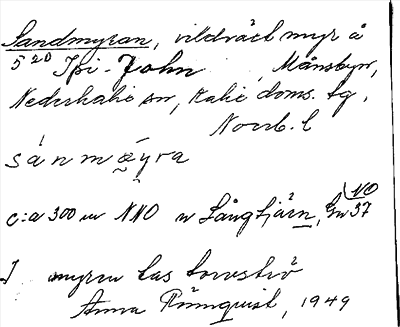 Sandmyran, vildväxt myr å
5²⁰ Ipi-John, Månsbyn,
Nederkalix sn, Kalix doms. tg,
Norrb. l
sánmæ̬̀yra
c:a 300 m NNO Långtjärn,
NO
37
I myren tas torvströ
Anna Rönnquist, 1949